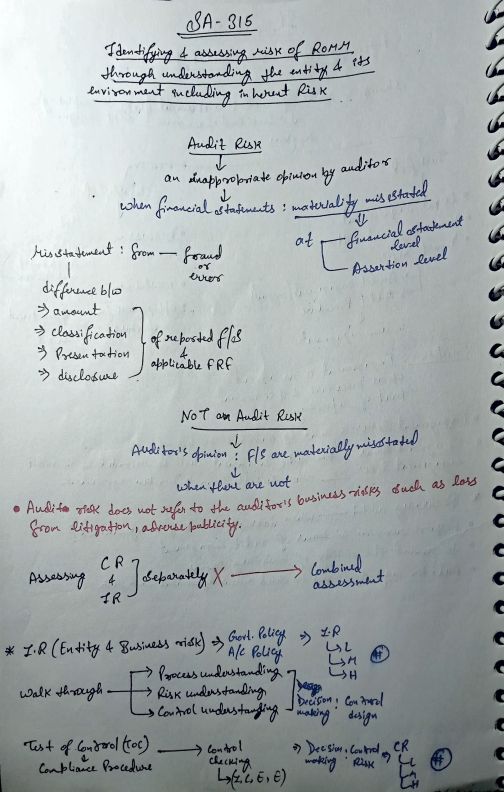 SA-315
Identifying & assessing risk of ROMM
through understanding the entity & its
environment including inherent Risk
Audit Risk
↓
an inappropriate opinion by auditor
↓
when financial statements : materiality misstated
⇓
at
financial statement
level
Assertion level
Misstatement : from — fraud
or
error
difference b/w
⇒ amount
⇒ classification
⇒ Presentation
⇒ disclosure
of reported f/s
&
applicable FRF
NOT an Audit Risk
↓
Auditor's opinion : F/S are materially misstated
↓
when there are not
• Audit risk does not refer to the auditor's business risks such as loss
from litigation, adverse publicity.
Assessing CR & IR ] separately X → Combined
assessment
* I.R (Entity & Business risk) ⇒ Govt. Policy ⇒ I.R
A/c Policy
↳ L
↳ M
↳ H
#
Walk through
→ Process understanding
→ Risk understanding
→ Control understanding
Decision : Control
making design
Test of Control (TOC) → Control ⇒ Decision : Control ⇒ CR
↓
Compliance Procedure
checking
making Risk
↳ (I, C, E, E)
L
M
H
#